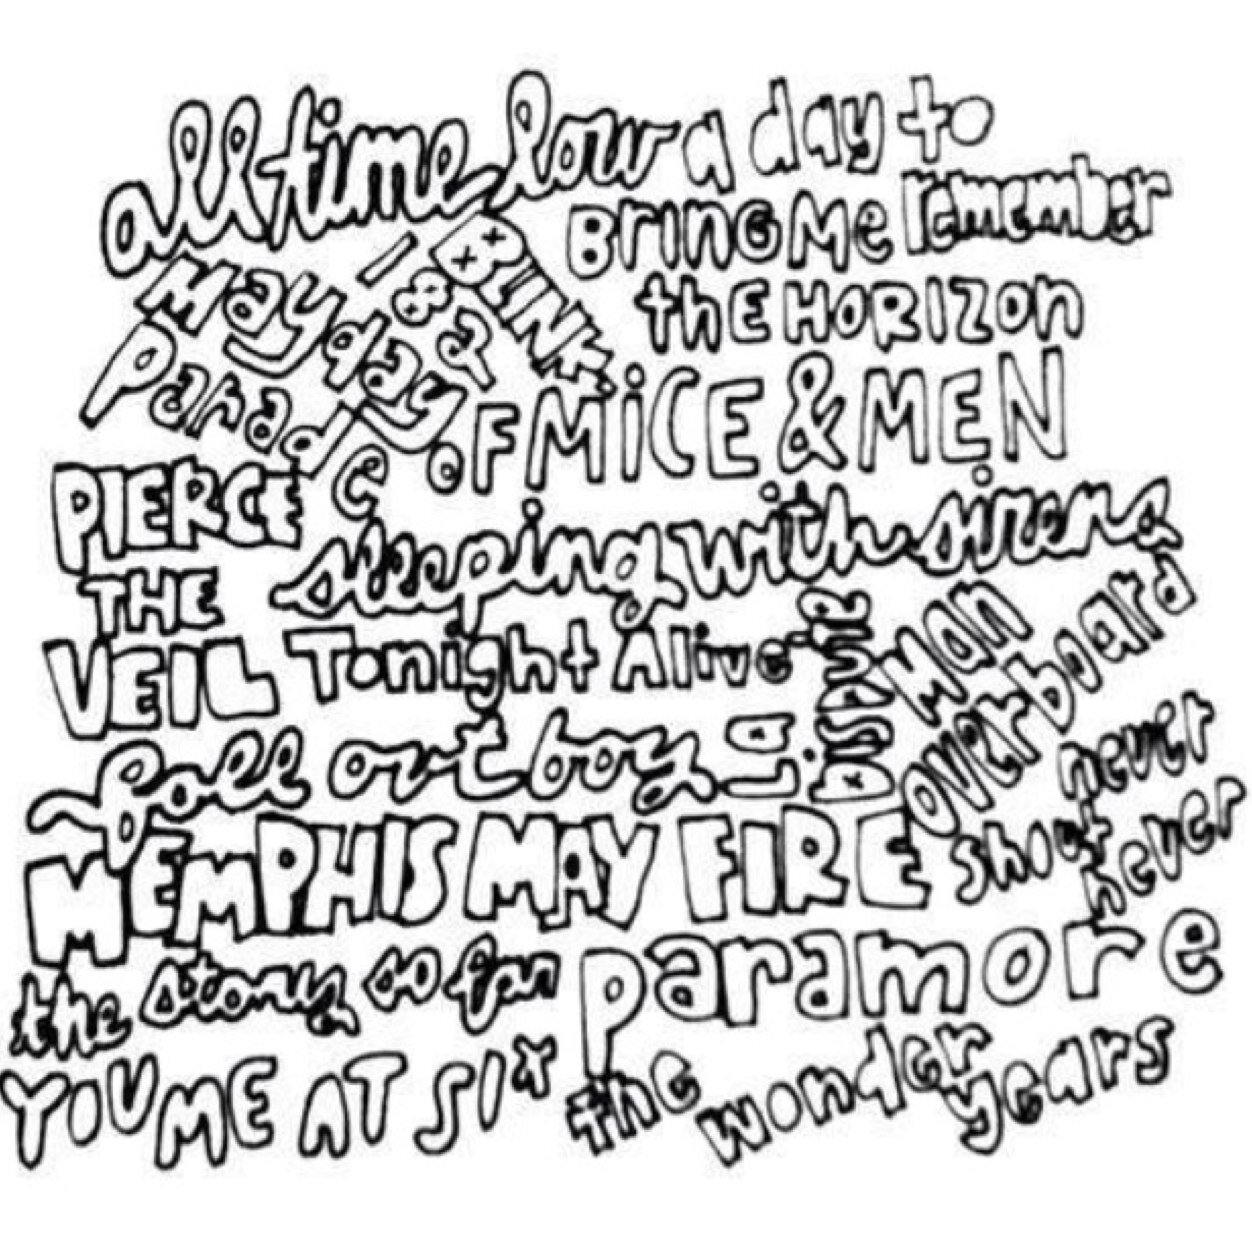 all time low
a day to
remember
BrInG Me
the HORIZon
BLINK
182
Mayday
Parade
oF MiCE & MEN
PIERCE
THE
VEIL
sleeping with sirens
Tonight Alive
Man
overboard
fall out boy
La Dispute
never
shout
never
MEMPHIS MAY FIRE
the story so far
paramore
YOU ME AT SIx
the wonder
years